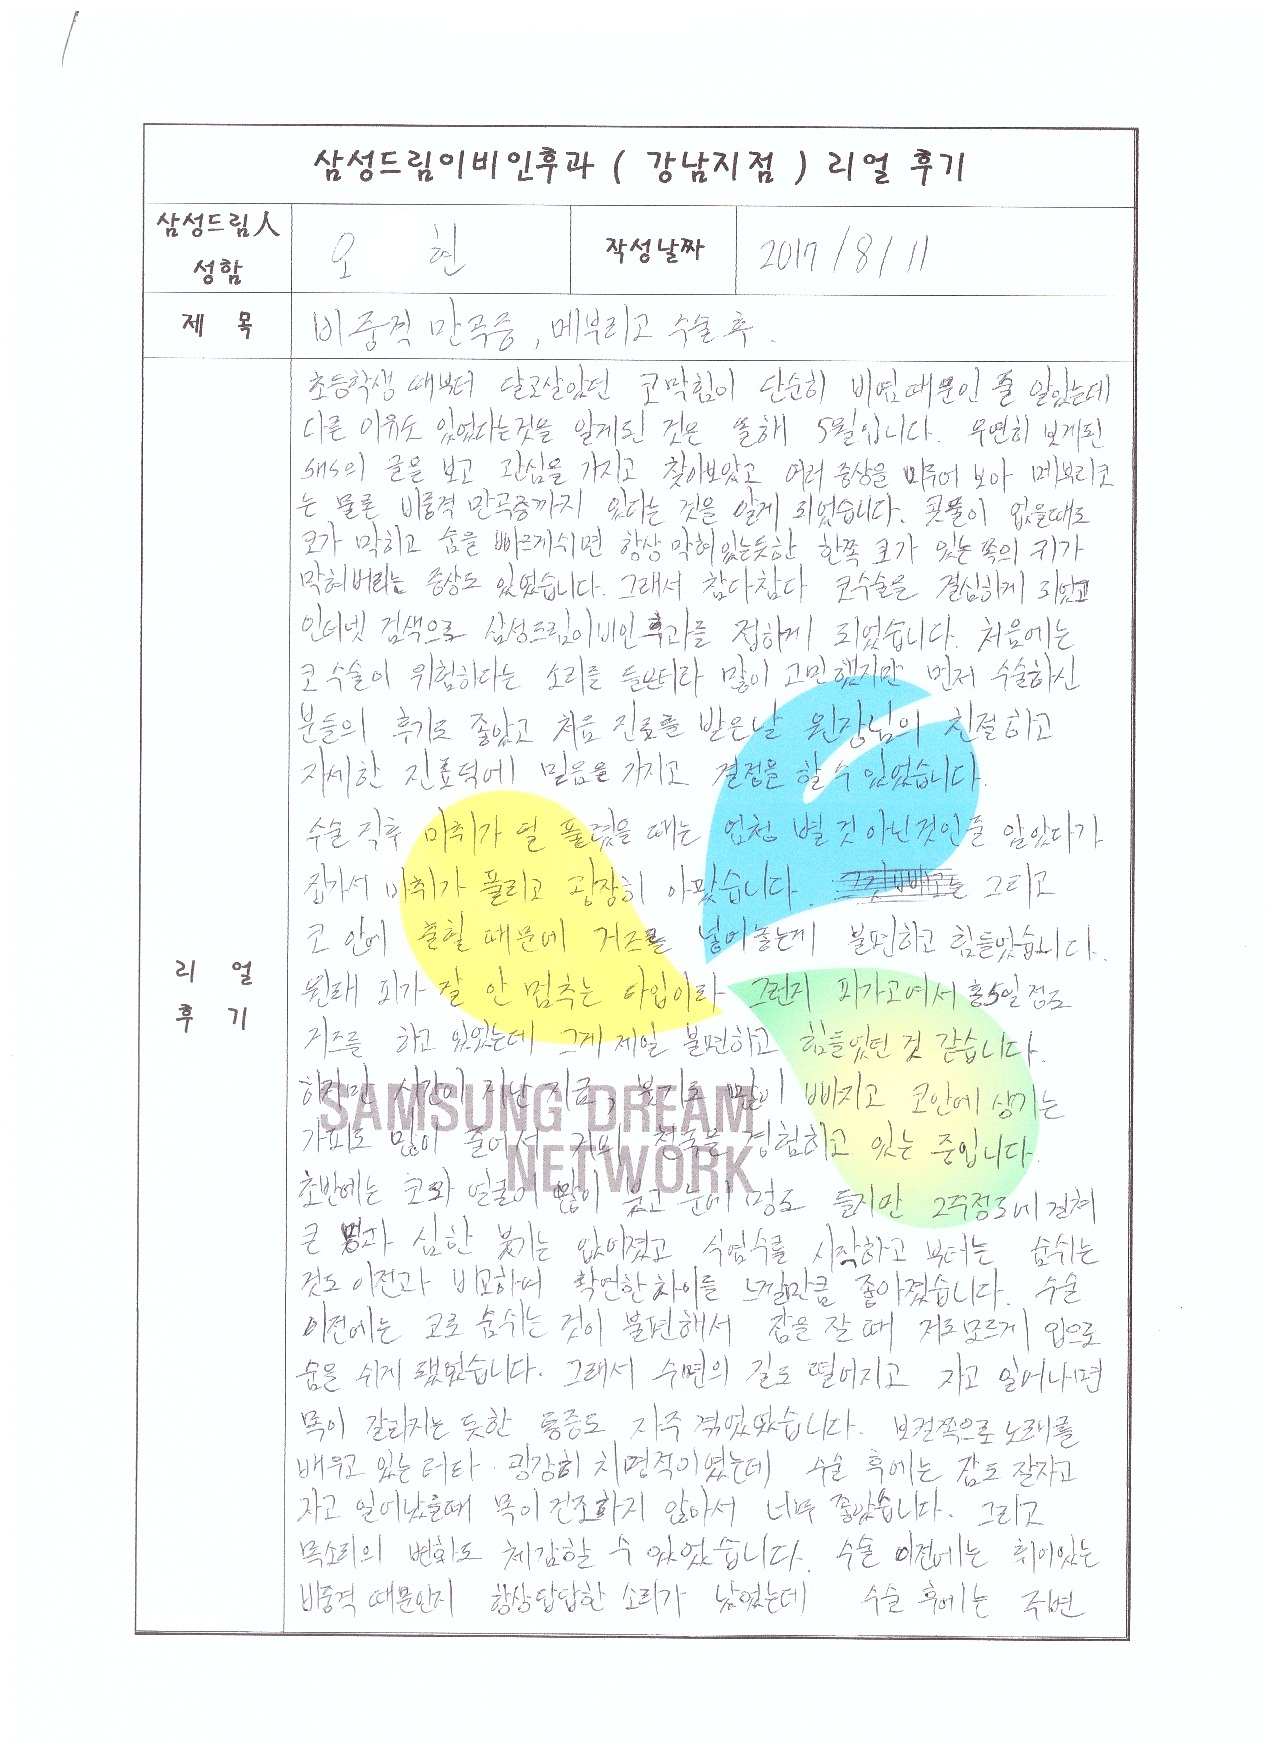 삼성드림이비인후과 ( 강남지점 ) 리얼 후기
삼성드림人 성함
오 현
작성날짜
2017/8/11
제 목
비중격 만곡증, 메부리코 수술 후.
리 얼
후 기
초등학생 때부터 달고살았던 코막힘이 단순히 비염때문인 줄 알았는데
다른 이유도 있었다는것을 알게된 것은 올해 5월입니다. 우연히 보게된
sns의 글을 보고 관심을 가지고 찾아보았고 여러 증상을 미루어 보아 메부리코
는 물론 비중격 만곡증까지 있다는 것을 알게 되었습니다. 콧물이 없을때도
코가 막히고 숨을 빠르게쉬면 항상 막혀있는듯한 한쪽 코가 있는 쪽의 귀가
막혀버리는 증상도 있었습니다. 그래서 참다참다 코수술을 결심하게 되었고
인터넷 검색으로 삼성드림이비인후과를 접하게 되었습니다. 처음에는
코 수술이 위험하다는 소리를 들은터라 많이 고민했지만 먼저 수술하신
분들의 후기도 좋았고 처음 진료를 받은날 원장님의 친절하고
자세한 진료덕에 믿음을 가지고 결정을 할 수 있었습니다.
수술 직후 마취가 덜 풀렸을 때는 엄청 별 것 아닌것인줄 알았다가
집가서 마취가 풀리고 굉장히 아팠습니다. 그리고
코 안에 출혈 때문에 거즈를 넣어놓는게 불편하고 힘들었습니다.
원래 피가 잘 안 멈추는 타입이라 그런지 피가고여서 총5일 정도
거즈를 하고 있었는데 그게 제일 불편하고 힘들었던 것 같습니다.
하지만 시간이 지난 지금, 붓기도 많이 빠지고 코안에 생기는
SAMSUNG DREAM
가피도 많이 줄어서 거의 천국을 경험하고 있는 중입니다.
NETWORK
초반에는 코와 얼굴이 많이 붓고 눈에 멍도 들지만 2주정도에 걸쳐
큰 멍과 심한 붓기는 없어졌고 식염수를 시작하고 부터는 숨쉬는
것도 이전과 비교하며 확연한 차이를 느낄만큼 좋아졌습니다. 수술
이전에는 코로 숨쉬는 것이 불편해서 잠을 잘 때 저도모르게 입으로
숨을 쉬게 됐었습니다. 그래서 수면의 질도 떨어지고 자고 일어나면
목이 갈라지는 듯한 통증도 자주 겪었었습니다. 보컬쪽으로 노래를
배우고 있는 터라 굉장히 치명적이였는데 수술 후에는 잠도 잘자고
자고 일어났을때 목이 건조하지 않아서 너무 좋았습니다. 그리고
목소리의 변화도 체감할 수 있었습니다. 수술 이전에는 휘어있는
비중격 때문인지 항상답답한 소리가 났었는데 수술 후에는 주변